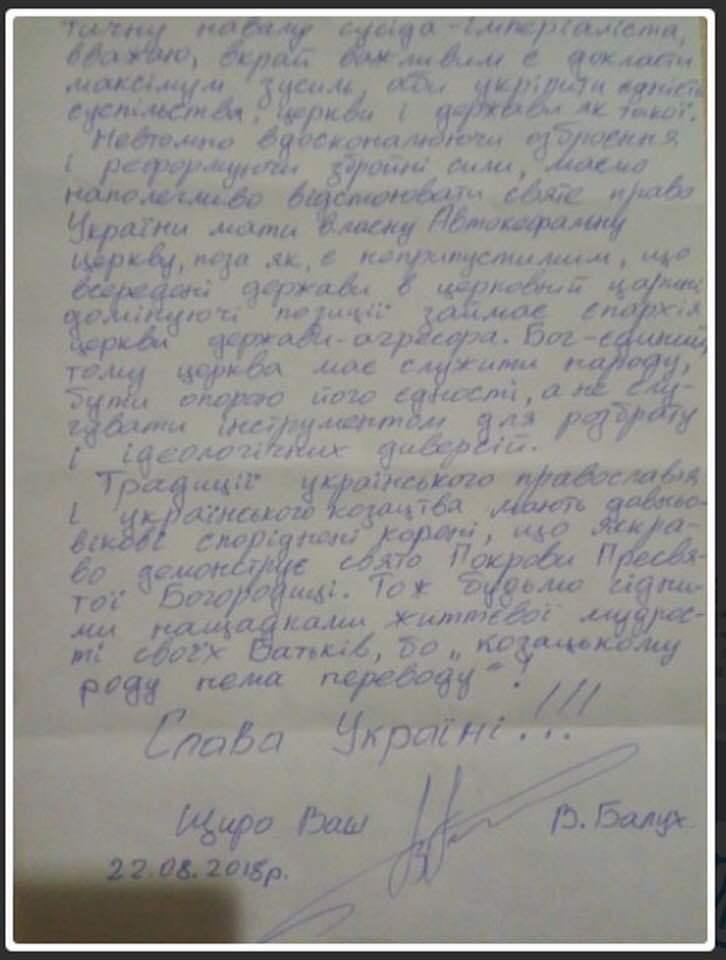 тичну навалу сусіда-імперіаліста,
вважаю, вкрай важливим є докласти
максімум зусиль, аби укріпити єдність
суспільства, церкви і держави як такої.
Невтомно вдосконалюючи озброєння
і реформуючи збройні сили, маємо
наполегливо відстоювати святе право
України мати власну Автокефальну
церкву, поза як, є неприпустимим, що
всередені держави в церковній царині
домінуючі позиції займає єпархія
церкви держави-агресора. Бог-єдиний,
тому церква має служити народу,
бути опорою його єдності, а не слу-
гувати інструментом для розбрату
і ідеологічних диверсій.
Традиції українського православія
і українського козацтва мають давньо-
вікові споріднені корені, що яскра-
во демонструє свято Покрови Пресвя-
тої Богородиці. Тож будьмо гідни-
ми нащадками життєвої мудрос-
ті своїх Батьків, бо „козацькому
роду нема переводу“!
Слава Україні!!!
Щиро Ваш В. Балух
22.08.2018р.